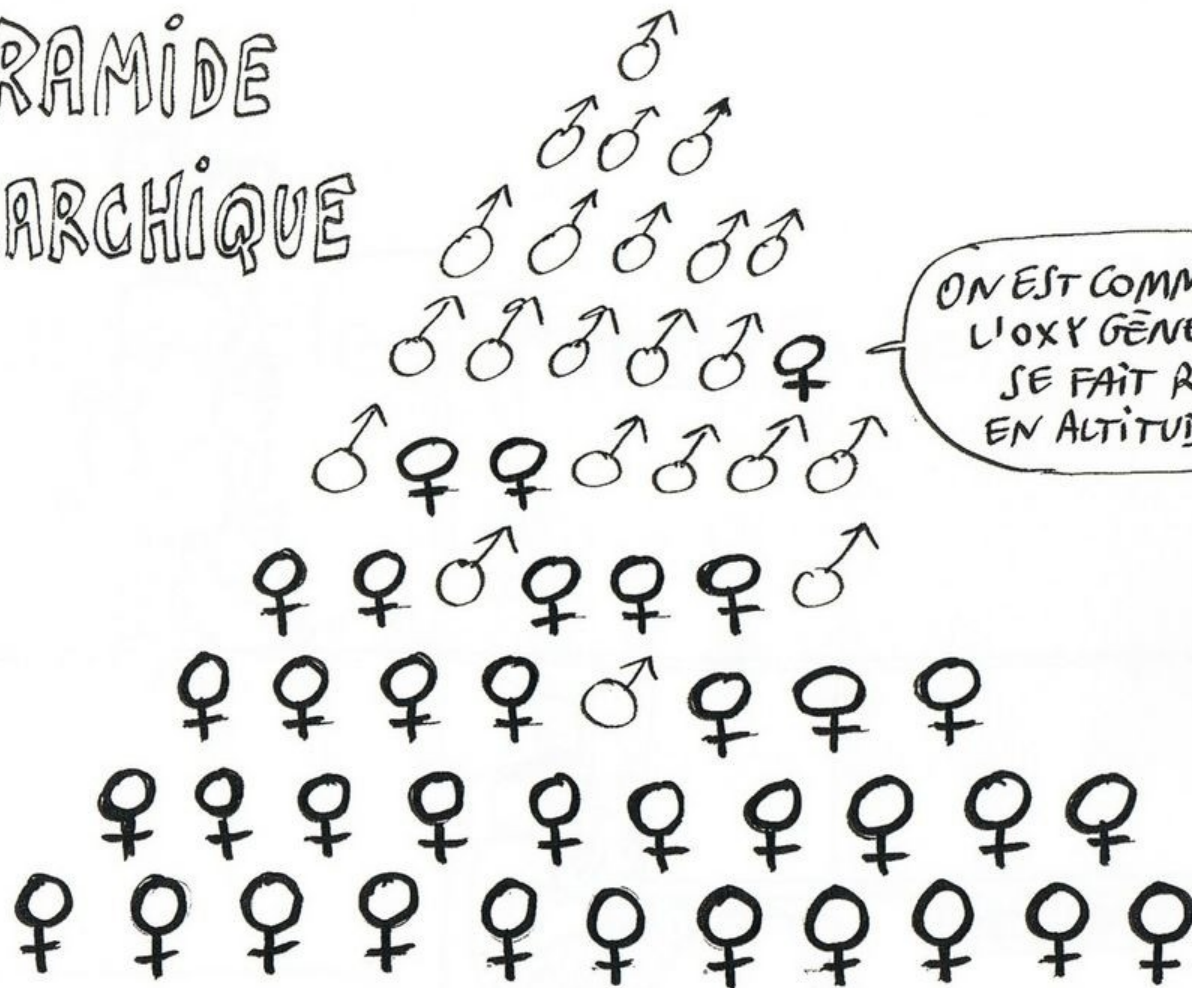 RAMiDE
ARCHiQUE
ON EST COMM
L'OXYGÈNE
SE FAiT R
EN ALTiTUD